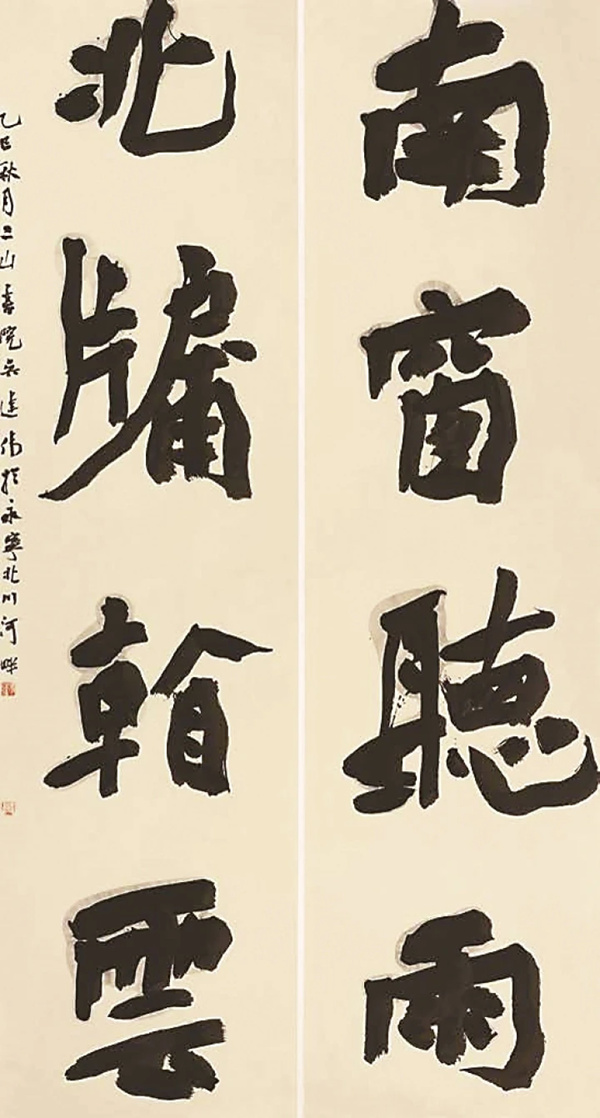 南窗聽雨
北牖看雲
乙巳秋月三山書院吳建偉於永寧北川河畔